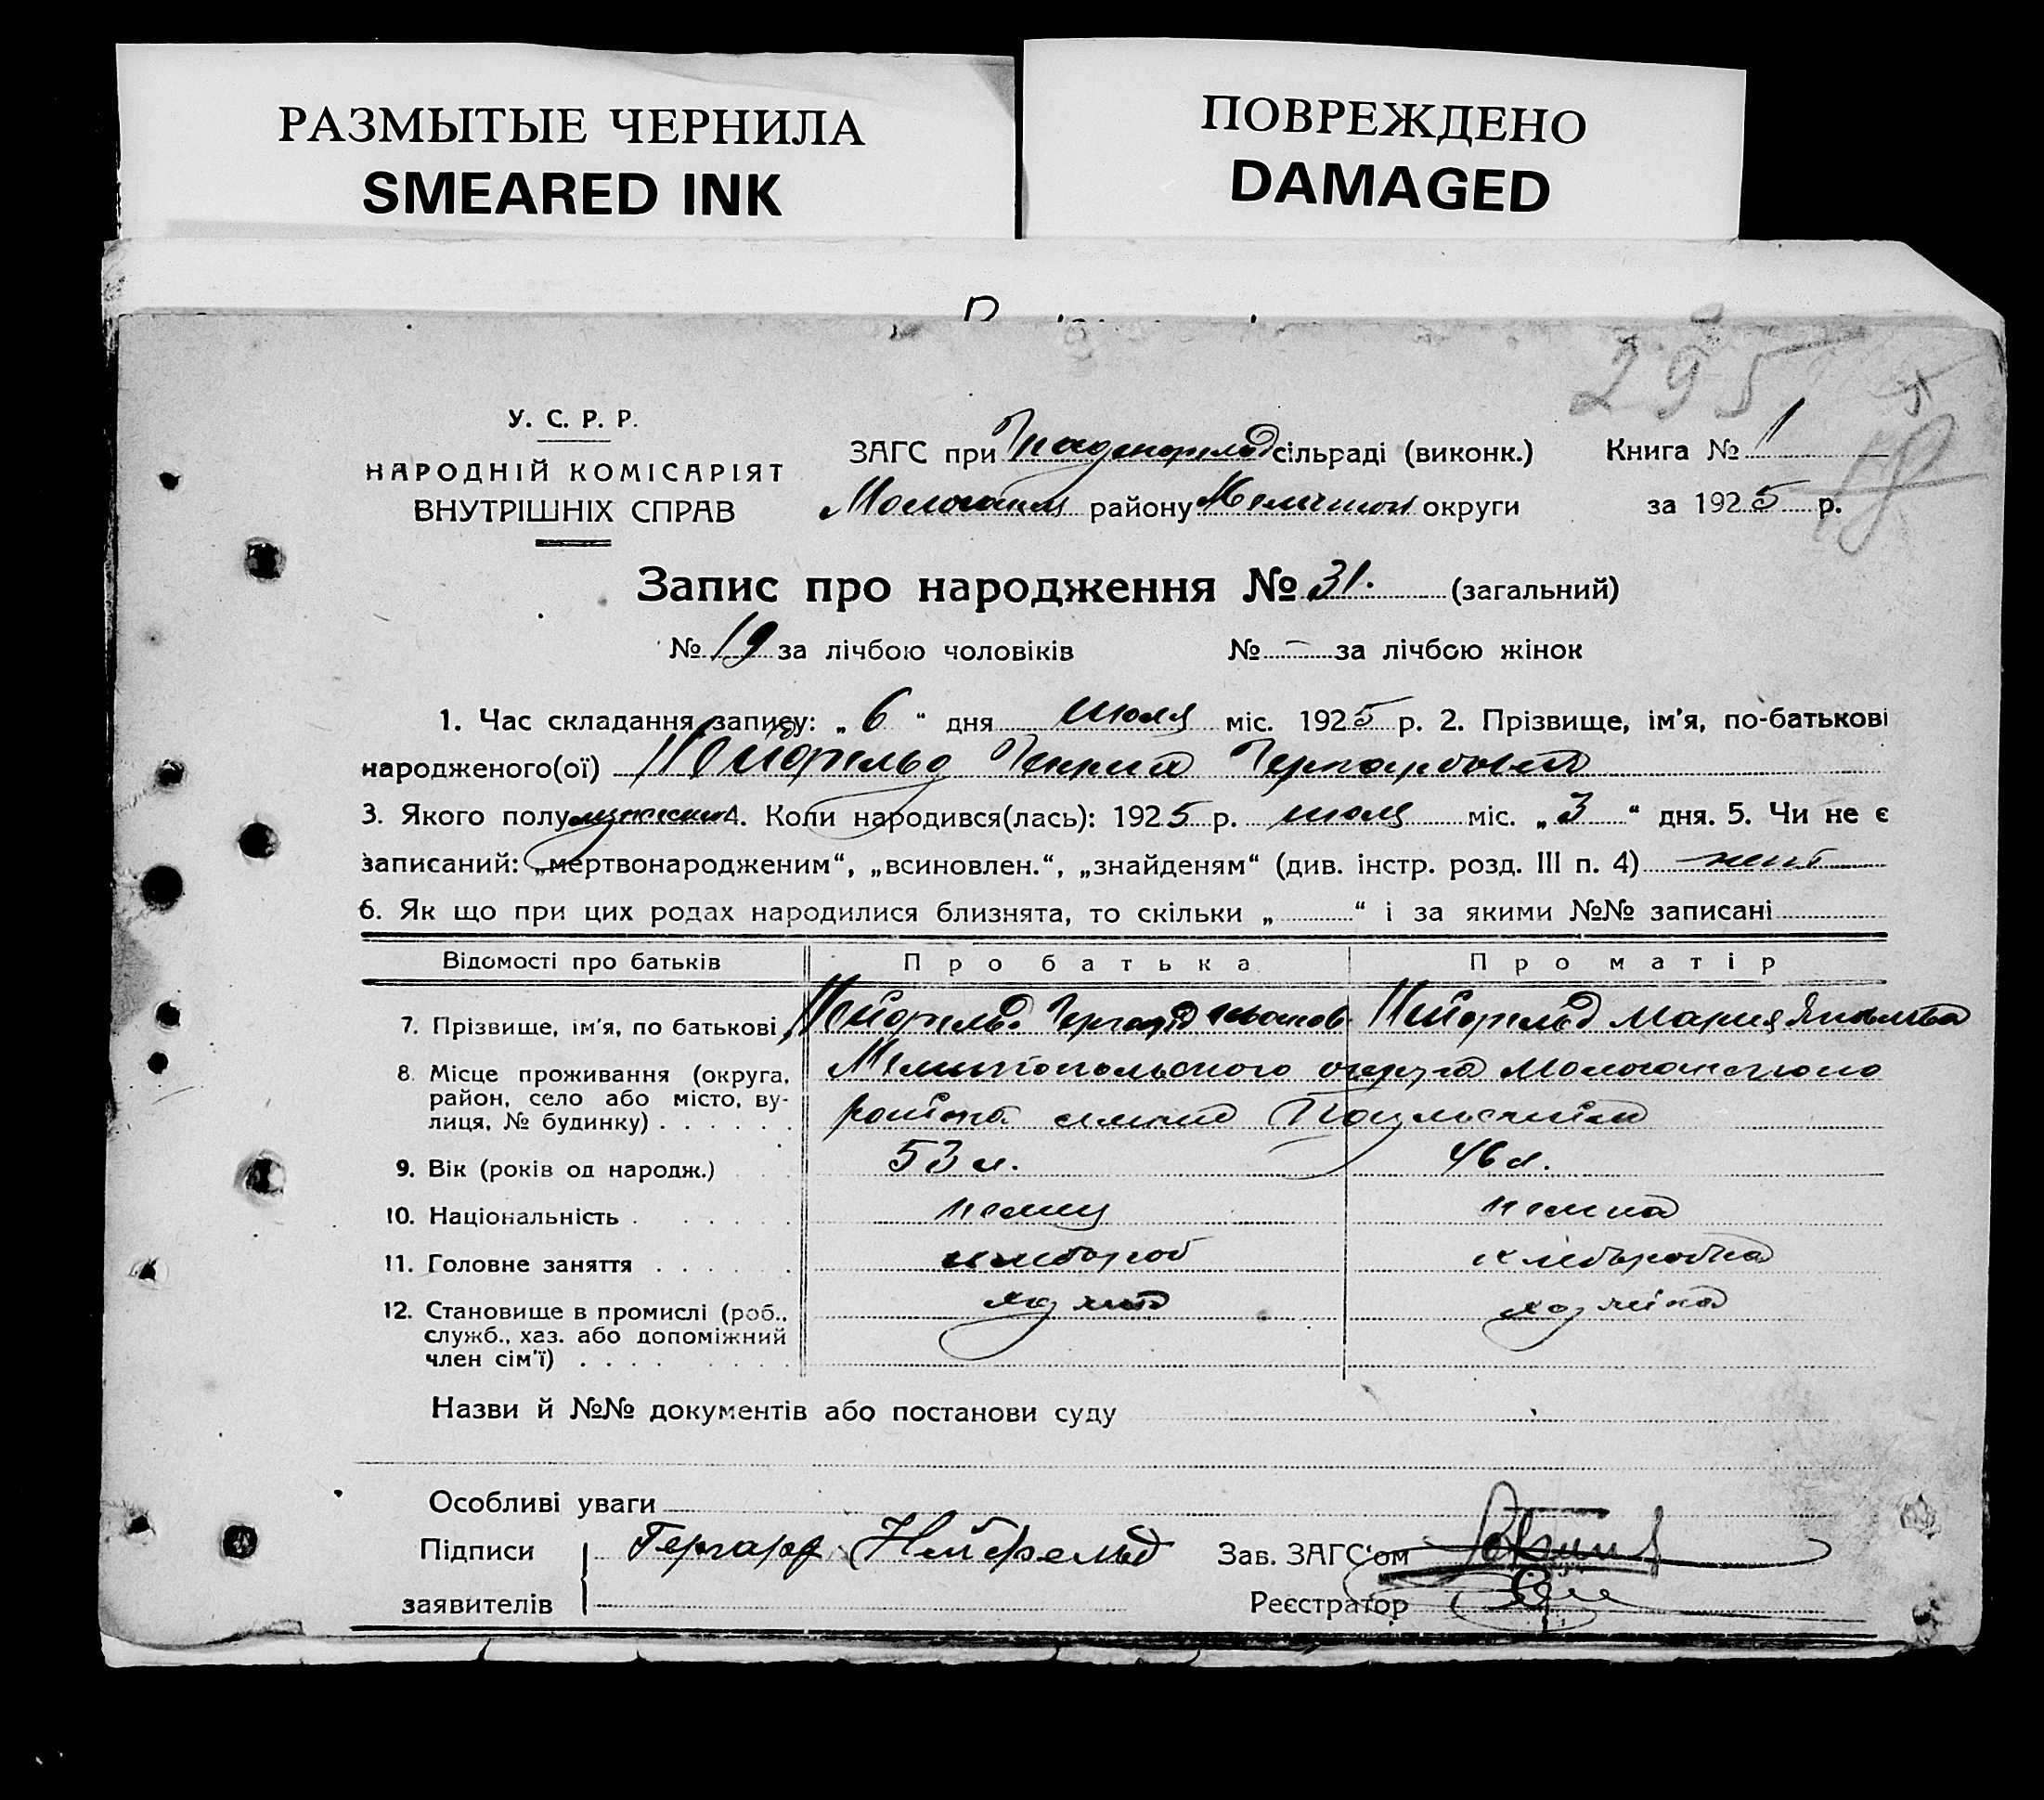 РАЗМЫТЫЕ ЧЕРНИЛА
SMEARED INK
ПОВРЕЖДЕНО
DAMAGED
295
У. С. Р. Р.
НАРОДНІЙ КОМІСАРІЯТ
ВНУТРІШНІХ СПРАВ
ЗАГС при Гнаденфельд сільраді (виконк.)
Книга № 1
району округи
за 1925 р.
Запис про народження № 31. (загальний)
№ 19 за лічбою чоловіків № - за лічбою жінок
1. Час складання запису: „ 6 “ дня июля міс. 1925 р. 2. Прізвище, ім'я, по-батькові
народженого(ої) Нейфельд Генрих Гергардович
3. Якого полу мужского 4. Коли народився(лась): 1925 р. июля міс. „ 3 “ дня. 5. Чи не є
записаний: „мертвонародженим“, „всиновлен.“, „знайденям“ (див. інстр. розд. III п. 4) нет
6. Як що при цих родах народилися близнята, то скільки „ “ і за якими №№ записані
Відомості про батьків Про батька Про матір
7. Прізвище, ім'я, по батькові Нейфельд Гергард Иванов Нейфельд Мария Яковлевна
8. Місце проживання (округа, район, село або місто, вулиця, № будинку) Мелитопольского округа Молочанского
района
9. Вік (років од народж.) 53 л. 46 л.
10. Національність немец немка
11. Головне заняття хлебороб хлеборобка
12. Становище в промислі (роб., служб., хаз. або допоміжний член сім'ї) хозяин хозяйка
Назви й №№ документів або постанови суду
Особливі уваги
Підписи Гергард Нейфельд Зав. ЗАГС'ом
заявителів Реєстратор